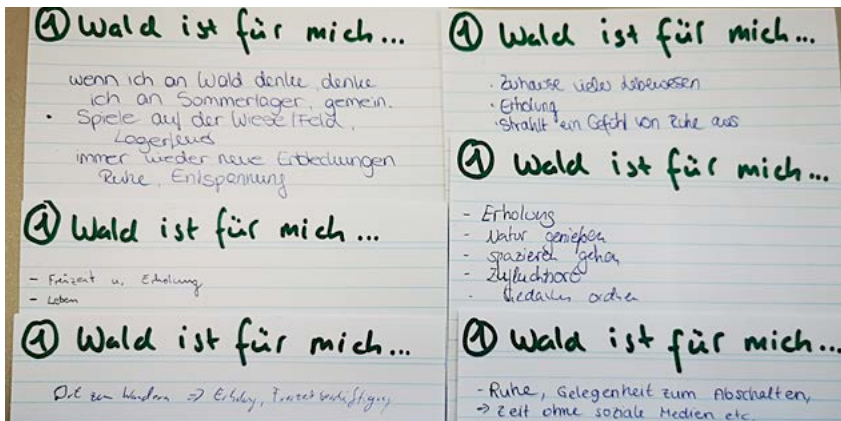 ① Wald ist für mich...
wenn ich an Wald denke, denke
ich an Sommerlager, gemein.
• Spiele auf der Wiese/Feld,
Lagerfeuer
immer wieder neue Entdeckungen
Ruhe, Entspannung
① Wald ist für mich...
- Freizeit u. Erholung
- Leben
① Wald ist für mich...
Ort zum Wandern => Erholung, Freizeitbeschäftigung
① Wald ist für mich...
· Zuhause vieler Lebewesen
· Erholung
· Strahlt ein Gefühl von Ruhe aus
① Wald ist für mich...
- Erholung
- Natur genießen
- spazieren gehen
- Zufluchtsort
- Gedanken ordnen
① Wald ist für mich...
- Ruhe, Gelegenheit zum Abschalten,
→ Zeit ohne soziale Medien etc.